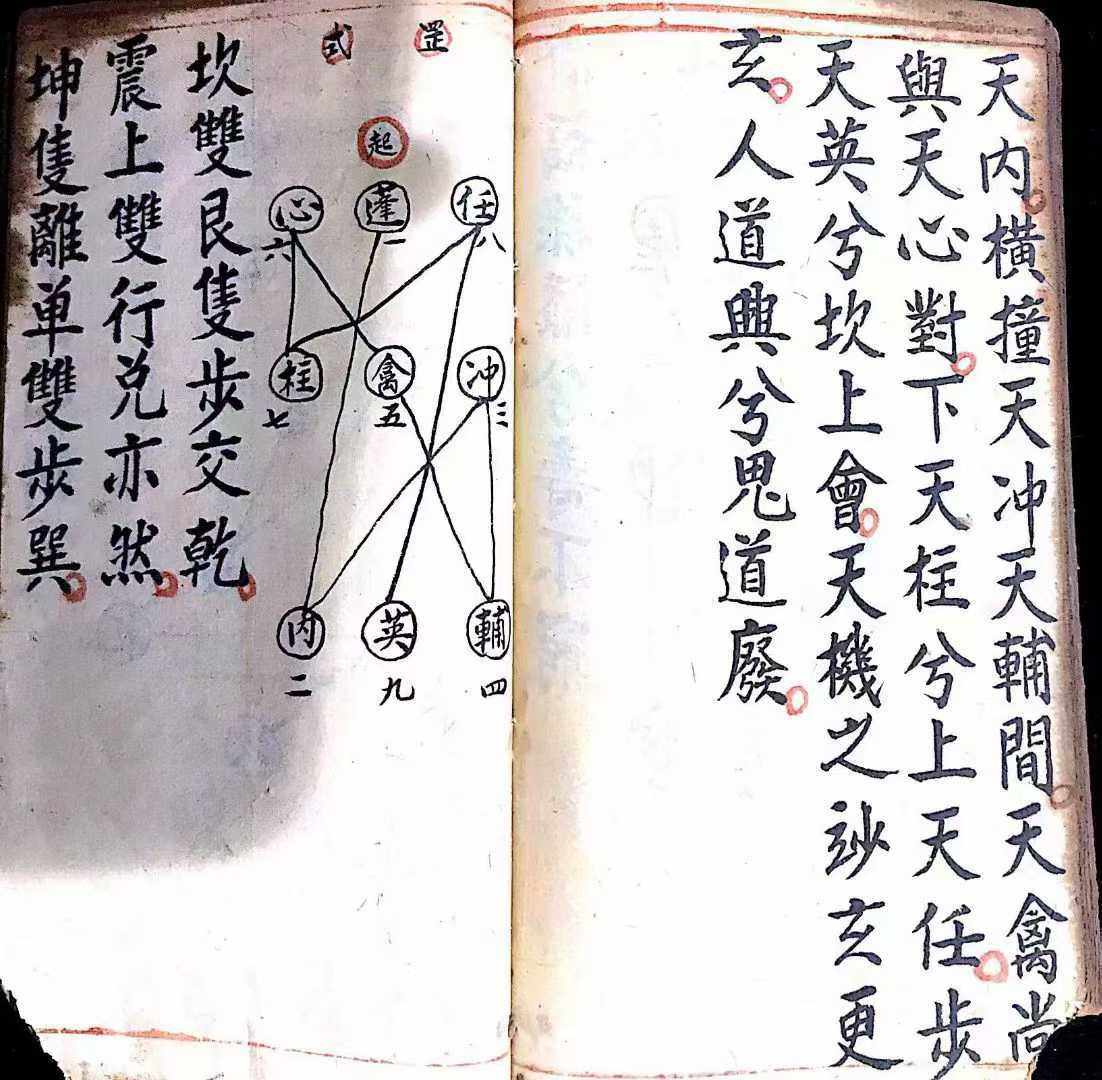 天内橫撞天冲天輔間天禽尚
與天心對下天柱兮上天任步
天英兮坎上會天機之玅玄更
玄人道興兮鬼道廢
罡式
起
任 蓬 心
八 一 六
冲 禽 柱
三 五 七
輔 英 内
四 九 二
坎雙艮隻步交乾
震上雙行兑亦然
坤隻離单雙步巽